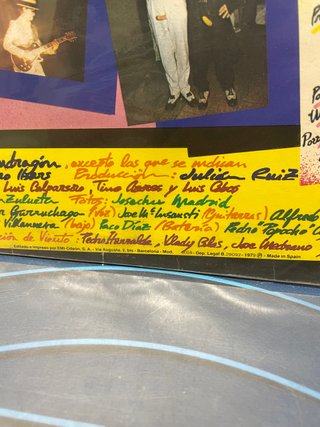 excepto las que se indican
Producción: Julián Ruiz
Luis Calparsoro, Tino Azores y Luis Cobos
Fotos: Josechu Madrid
(Voz) Joe Mª Insausti (Guitarras) Alfredo
Villanueva (bajo) Paco Díaz (Batería) Pedro "Popocho"
de Viento: Pedro Iturralde, Vlady Blas, Joe Medrano
Editado e impreso por EMI-Odeon, S. A. - Via Augusta - Barcelona - Mod. Dep. Legal B. 29092 - 1979 Ⓟ - Made in Spain